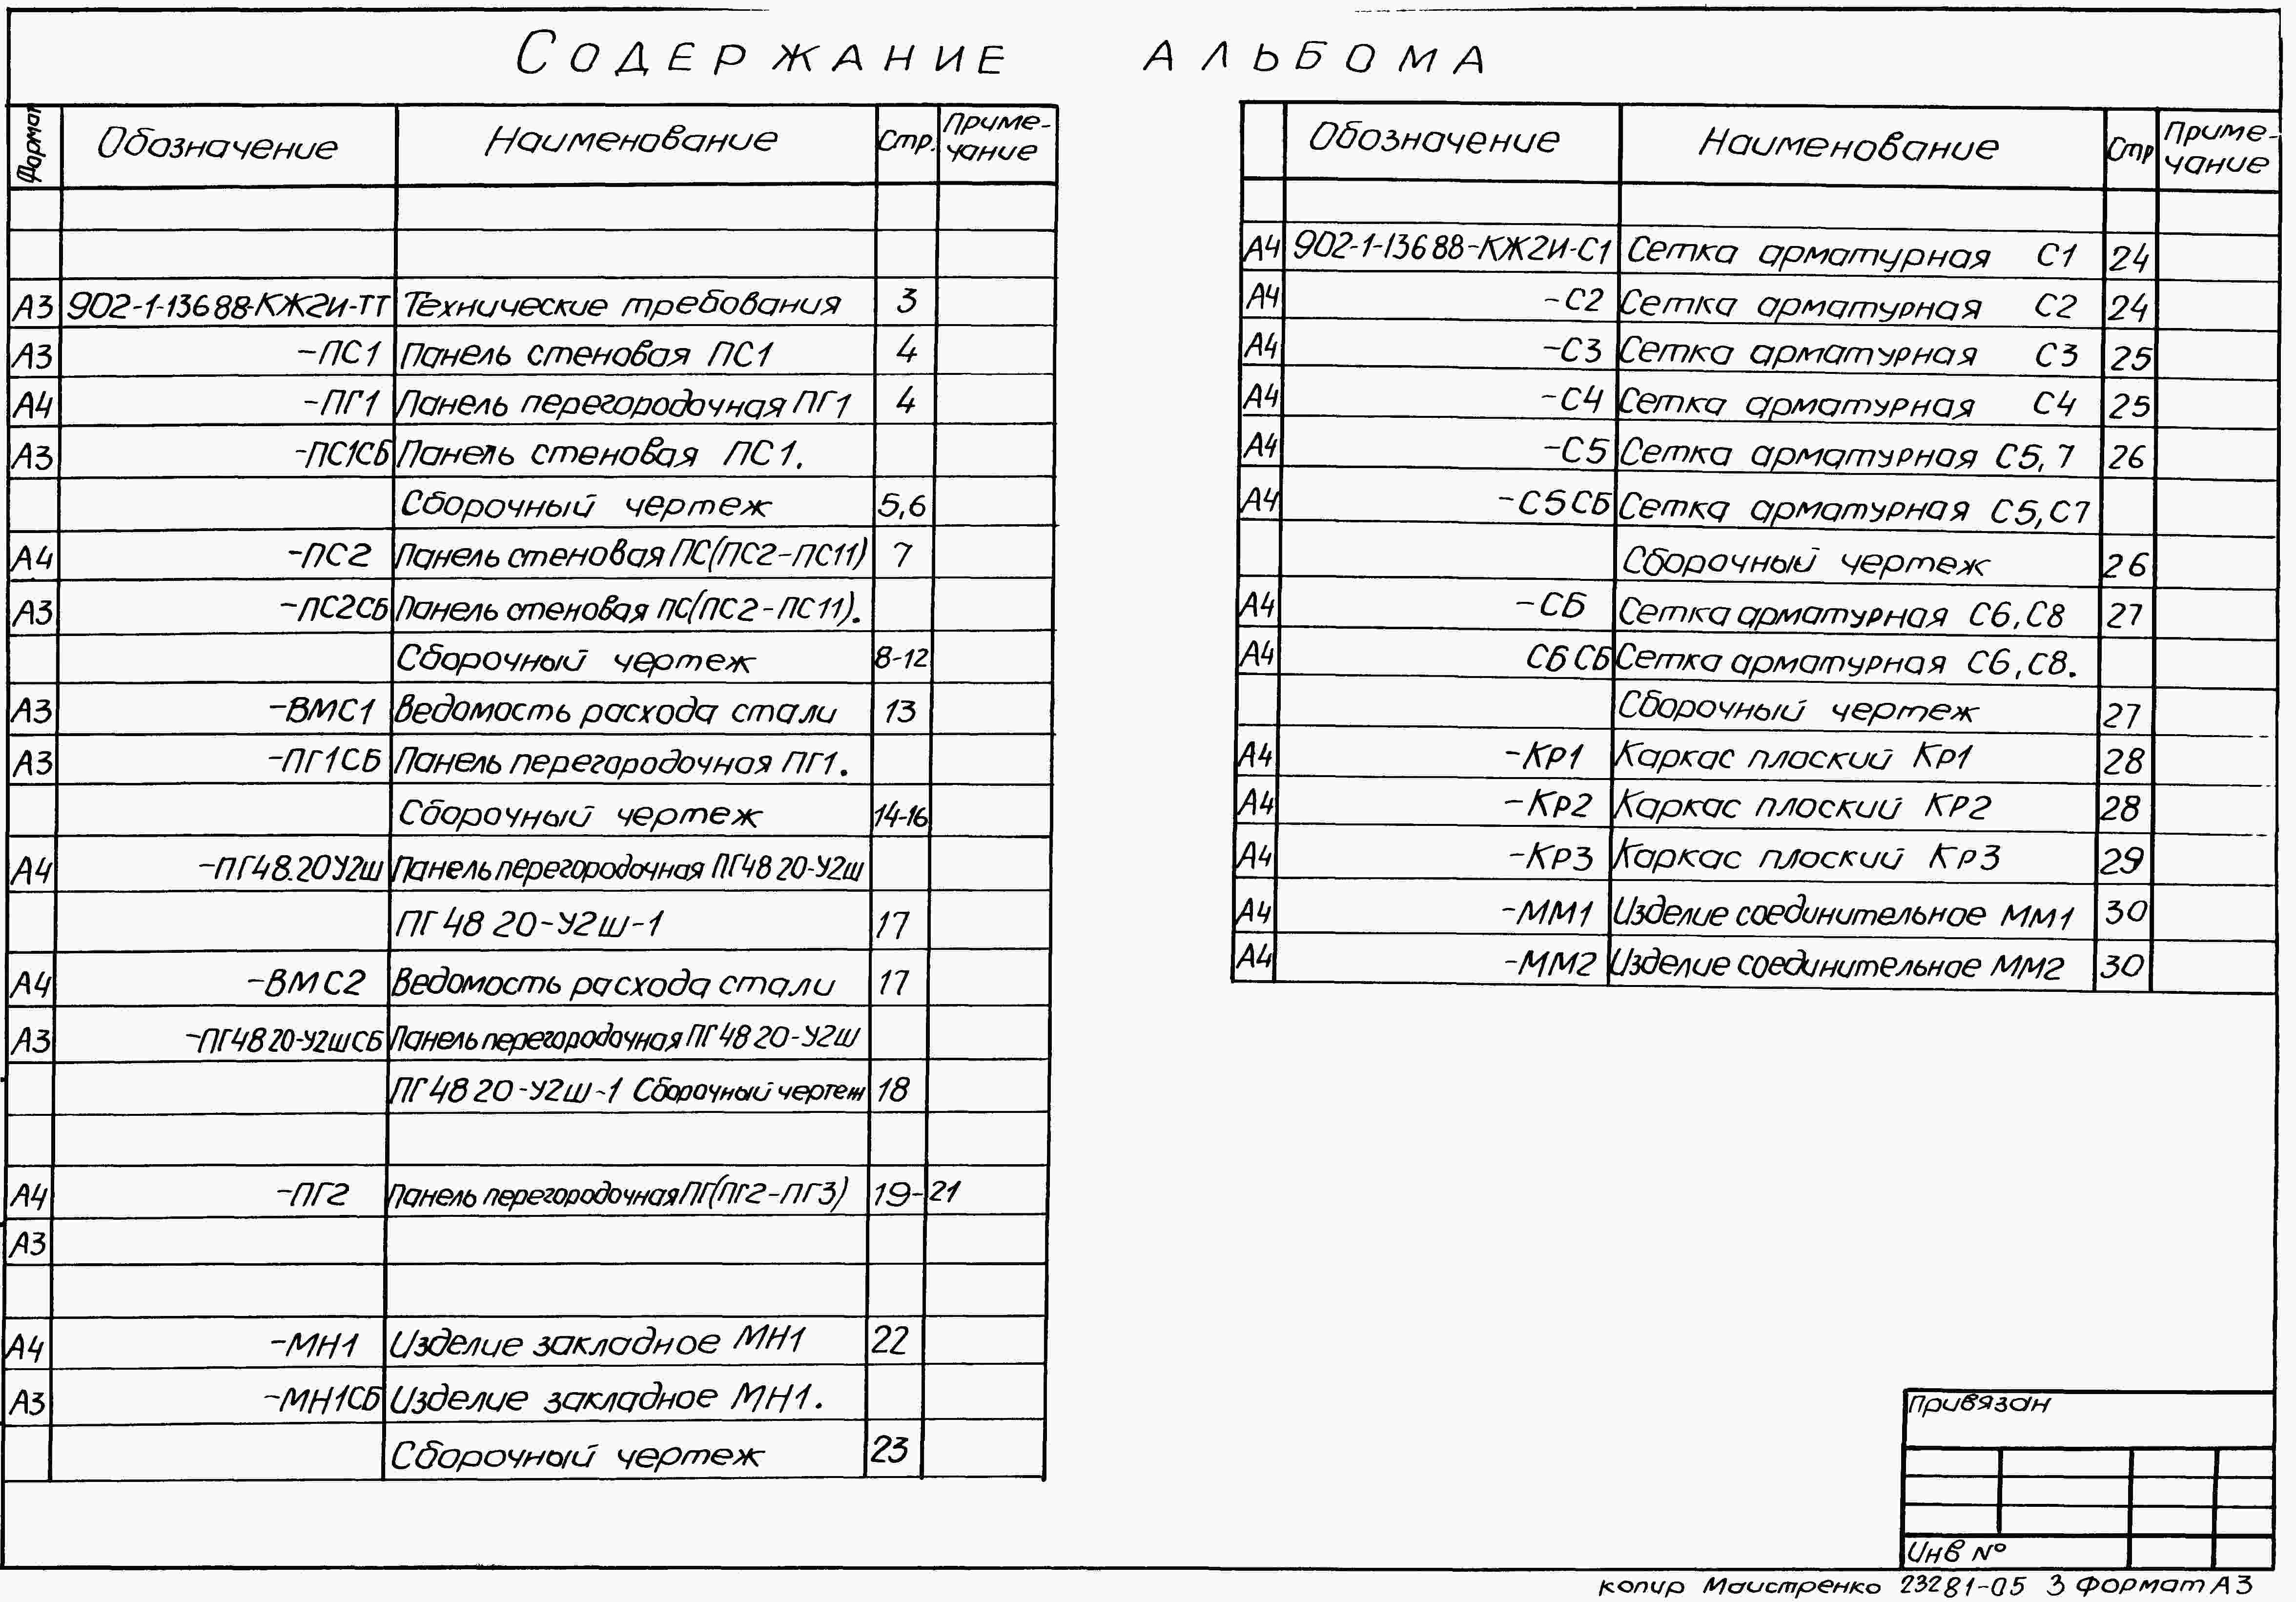 СОДЕРЖАНИЕ АЛЬБОМА
Формат Обозначение Наименование Стр. Приме-чание
А3 902-1-136 88-КЖ2И-ТТ Технические требования 3
А3 -ПС1 Панель стеновая ПС1 4
А4 -ПГ1 Панель перегородочная ПГ1 4
А3 -ПС1СБ Панель стеновая ПС1.
Сборочный чертеж 5,6
А4 -ПС2 Панель стеновая ПС(ПС2-ПС11) 7
А3 -ПС2СБ Панель стеновая ПС(ПС2-ПС11).
Сборочный чертеж 8-12
А3 -ВМС1 Ведомость расхода стали 13
А3 -ПГ1СБ Панель перегородочная ПГ1.
Сборочный чертеж 14-16
А4 -ПГ48.20У2ш Панель перегородочная ПГ48 20-У2ш
ПГ 48 20-У2ш-1 17
А4 -ВМС2 Ведомость расхода стали 17
А3 -ПГ48 20-У2шСБ Панель перегородочная ПГ 48 20-У2ш
ПГ 48 20-У2ш-1 Сборочный чертеж 18
А4 -ПГ2 Панель перегородочная ПГ(ПГ2-ПГ3) 19-21
А3
А4 -МН1 Изделие закладное МН1 22
А3 -МН1СБ Изделие закладное МН1.
Сборочный чертеж 23
Обозначение Наименование Стр Приме-чание
А4 902-1-136 88-КЖ2И-С1 Сетка арматурная С1 24
А4 -С2 Сетка арматурная С2 24
А4 -С3 Сетка арматурная С3 25
А4 -С4 Сетка арматурная С4 25
А4 -С5 Сетка арматурная С5,7 26
А4 -С5СБ Сетка арматурная С5,С7
Сборочный чертеж 26
А4 -СБ Сетка арматурная С6,С8 27
А4 С6СБ Сетка арматурная С6,С8.
Сборочный чертеж 27
А4 -Кр1 Каркас плоский Кр1 28
А4 -Кр2 Каркас плоский КР2 28
А4 -КР3 Каркас плоский Кр3 29
А4 -ММ1 Изделие соединительное ММ1 30
А4 -ММ2 Изделие соединительное ММ2 30
Привязан
Инв №
копир Маистренко 23281-05 3 Формат А3